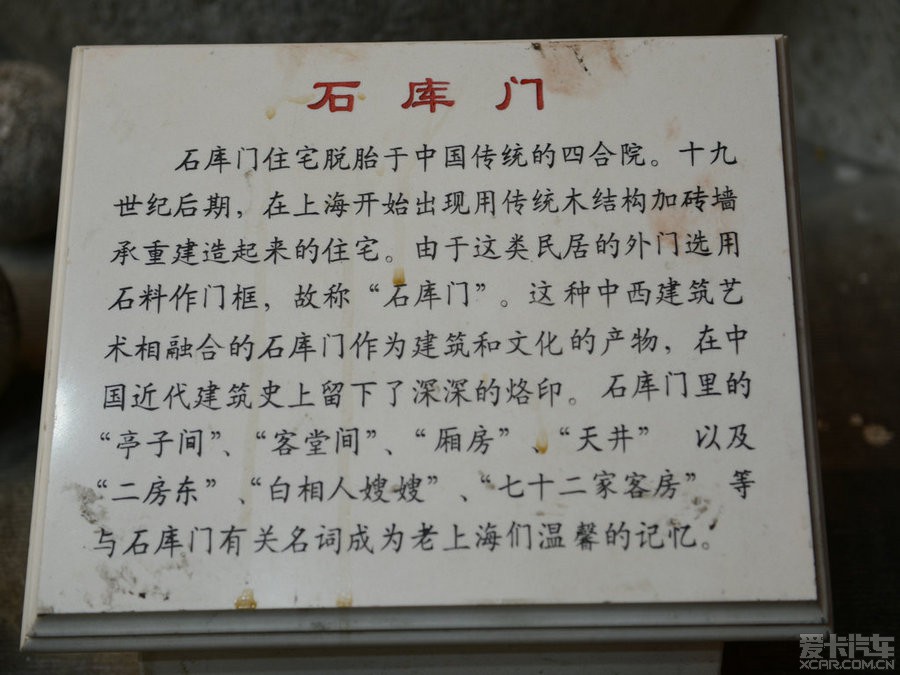 石库门
石库门住宅脱胎于中国传统的四合院。十九
世纪后期，在上海开始出现用传统木结构加砖墙
承重建造起来的住宅。由于这类民居的外门选用
石料作门框，故称“石库门”。这种中西建筑艺
术相融合的石库门作为建筑和文化的产物，在中
国近代建筑史上留下了深深的烙印。石库门里的
“亭子间”、“客堂间”、“厢房”、“天井” 以及
“二房东”、“白相人嫂嫂”、“七十二家客房” 等
与石库门有关名词成为老上海们温馨的记忆。
爱卡汽车
XCAR.COM.CN